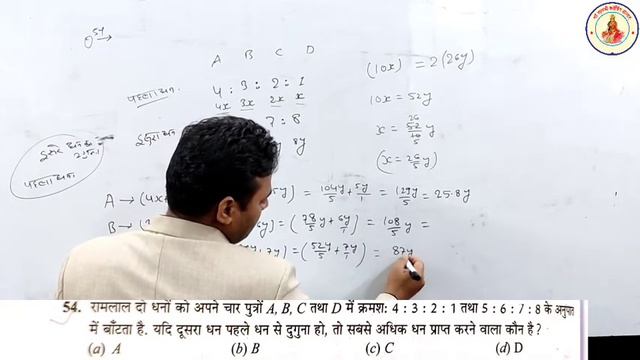 A B C D
पहला धन 4 : 3 : 2 : 1
4x 3x 2x x
7 : 8
8y
दूसरे धन का
दुगुना
पहला धन
(10x) = 2 (26y)
10x = 52y
x = 26/5 y
(x = 26/5 y)
A → (4x+ 5y) = 104y/5 + 5y/1 = 129y/5 = 25.8y
B → = (78/5 y + 6y/1) = 108/5 y =
+ 7y) = (52y/5 + 7y/1) = 87y
54. रामलाल दो धनों को अपने चार पुत्रों A, B, C तथा D में क्रमशः 4 : 3 : 2 : 1 तथा 5 : 6 : 7 : 8 के अनुपात
में बाँटता है. यदि दूसरा धन पहले धन से दुगुना हो, तो सबसे अधिक धन प्राप्त करने वाला कौन है ?
(a) A (b) B (c) C (d) D